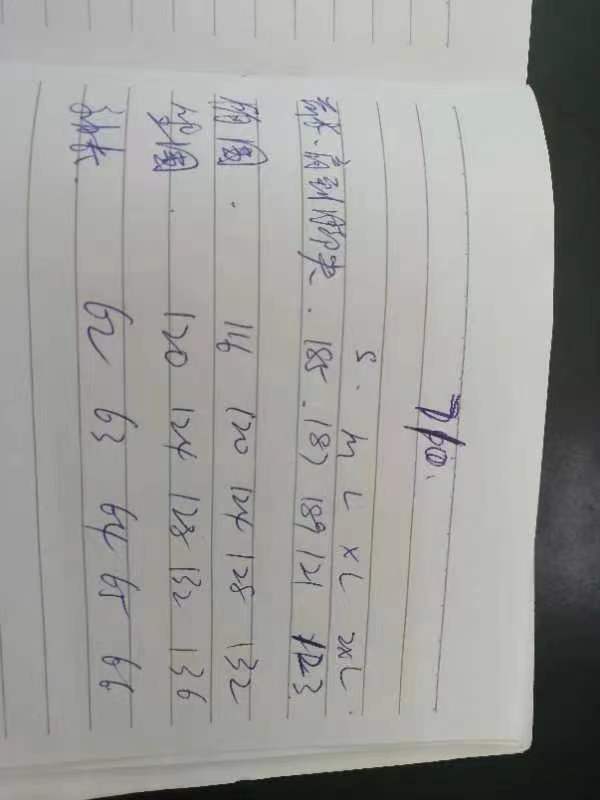 S. M L XL 2XL.
185. 187 189 121 123
胸围. 116 120 124 128 132
臀围. 120 124 128 132 136
袖长. 62 63 64 65 66